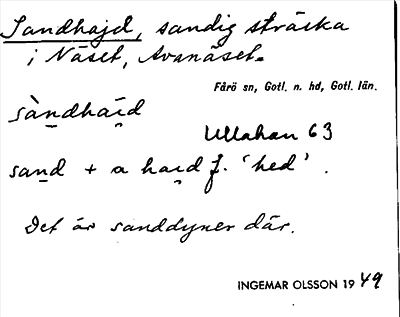 Sandhajd, sandig sträcka
i Näset, Avanäset.
Fårö sn, Gotl. n. hd, Gotl. län.
sàndhaid
Ullahau 63
sand + a haid f. 'hed'.
Det är sanddyner där.
INGEMAR OLSSON 1949